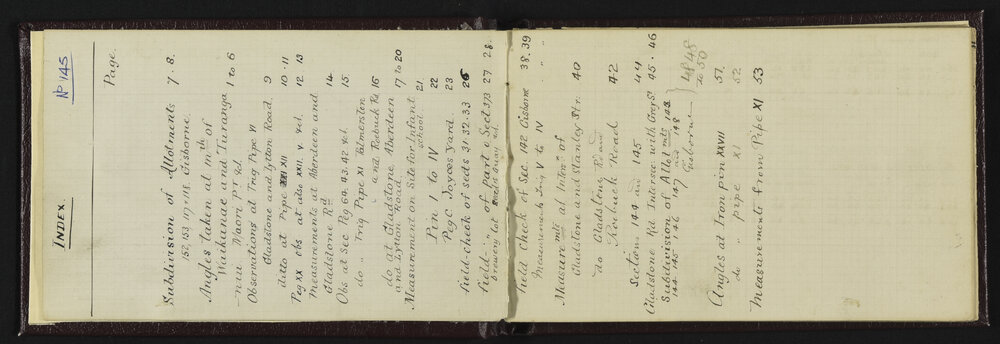 Nº 145
INDEX.
Page.
Subdivision of Allotments 7.8.
152, 153 117 & 118. Gisborne.
Angles taken at mth of
Waikanae and Turanga 1 to 6
-nui Maori PT &cl.
Observations at Trig Pipe VI
Gladstone and Lytton Road. 9
ditto at Pipe XII 10 11
Peg XX obs at also XXII. V. &cl. 12 13
Measurements at Aberdeen and
Gladstone Rd 14
Obs at Sec Peg 64. 43. 42 &cl. 15
do " Trig Pipe XI Palmerston
and Roebuck Rd 16
do at Gladstone Aberdeen 17 to 20
and Lytton Road
Measurement on Site for Infant
School. 21
Pin I to IV 22
Peg C Joyces Yard. 23
field-check of sects 31. 32. 33 26
field " of part of Sect 313 27 28.
brewery lot &cl.
field check of Sec. 142 Gisborne 38.39
Measurements Trig V to IV " "
Measure mts at Intern of
Gladstone and Stanley Str. 40
do Gladstone Rd and
Roebuck Road 42
Sections 144 and 145 44
Gladstone Rd Intersec with Grey St 45. 46
Subdivision of Allot mts 143.
144 145 146 147 and 148
Gisborne
48 48
to 50
Angles at Iron pin XXVIII 51.
do " pipe XI 52
Measurements from Pipe XI 53